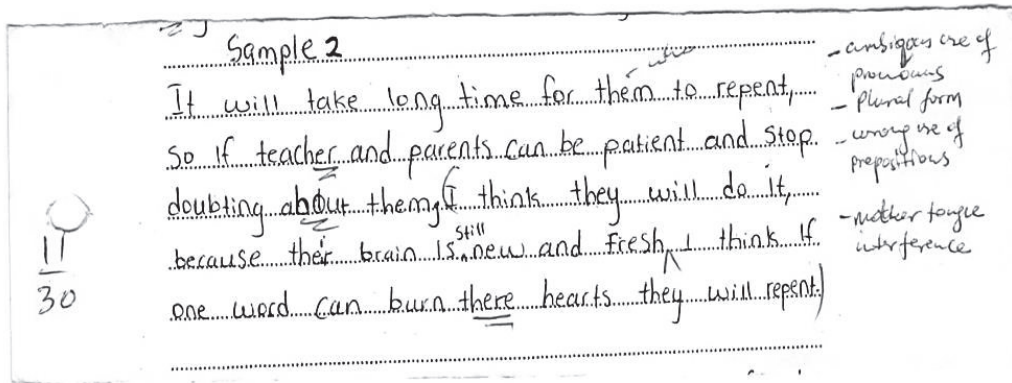 Sample 2
It will take long time for them to repent,
So if teacher and parents can be patient and stop
doubting about them, I think they will do it,
because their brain is still new and fresh I think if
one word can burn there hearts they will repent.
who
- ambigous use of
pronouns
- Plural form
- wrong use of
prepositions
- mother tongue
interference
11
30